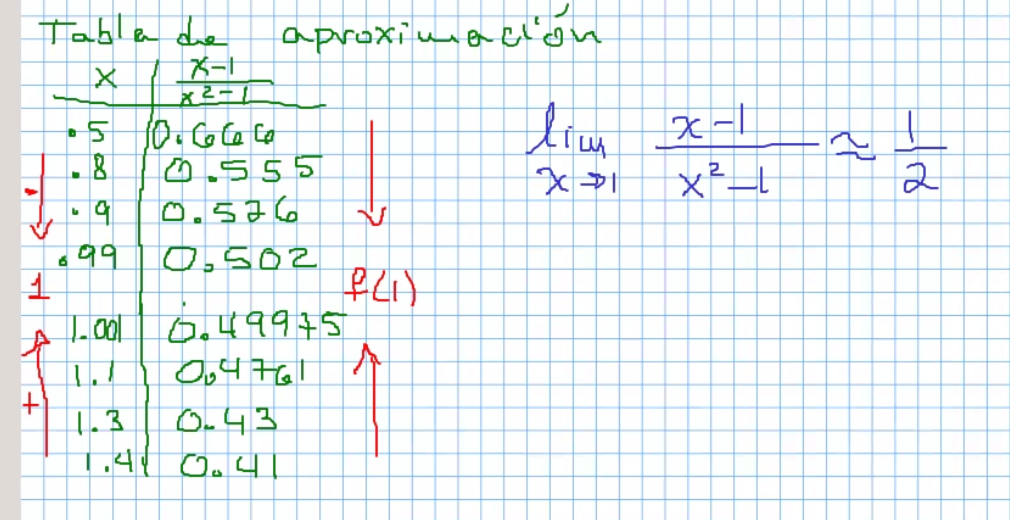 Tabla de aproximación
x | x-1 / x²-1
.5 | 0.666
.8 | 0.555
- .9 | 0.526
.99 | 0.502
1 f(1)
1.001 | 0.49975
1.1 | 0.4761
+ 1.3 | 0.43
1.4 | 0.41
lim x→1 x-1 / x²-1 ≈ 1/2